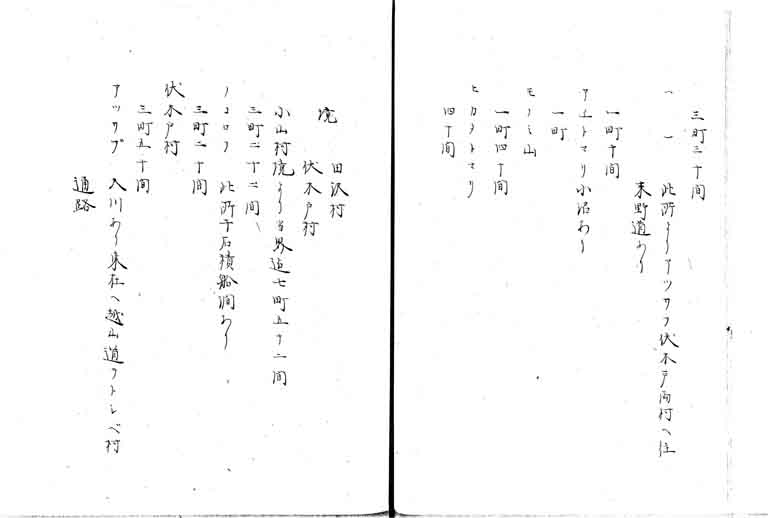 三町三十間
一 一 此所ヨリアツサフ伏木戸両村ヘ往
来野道あり
一町十間
トマリ小沼あり
一町
モノミ山
一町四十間
ヒカタトマリ
四十間
境 田沢村
伏木戸村
小山村境より当界迄七町五十二間
三町二十二間
ノコロフ 此所千石積船澗あり
三町二十間
伏木戸村
三町五十間
アツサブ 入川あり東在ヘ越山道ヲトシベ村
通路